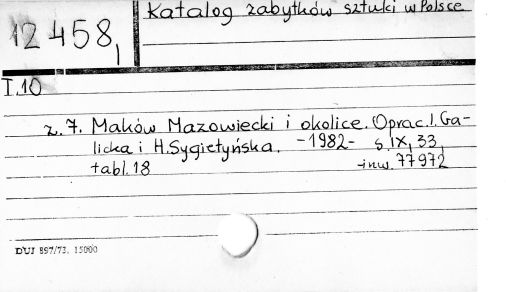 12458,
Katalog zabytków sztuki w Polsce
I.10
z. 7. Maków Mazowiecki i okolice. Oprac. I. Ga-
licka i H. Sygietyńska. -1982- s. IX, 33,
tabl. 18 inw. 77972
DUJ 897/73. 15000